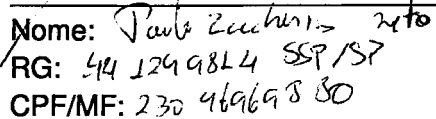 Nome: Paulo Zucheris neto
RG: 44 129 981 4 SSP/SP
CPF/MF: 230 969698 80